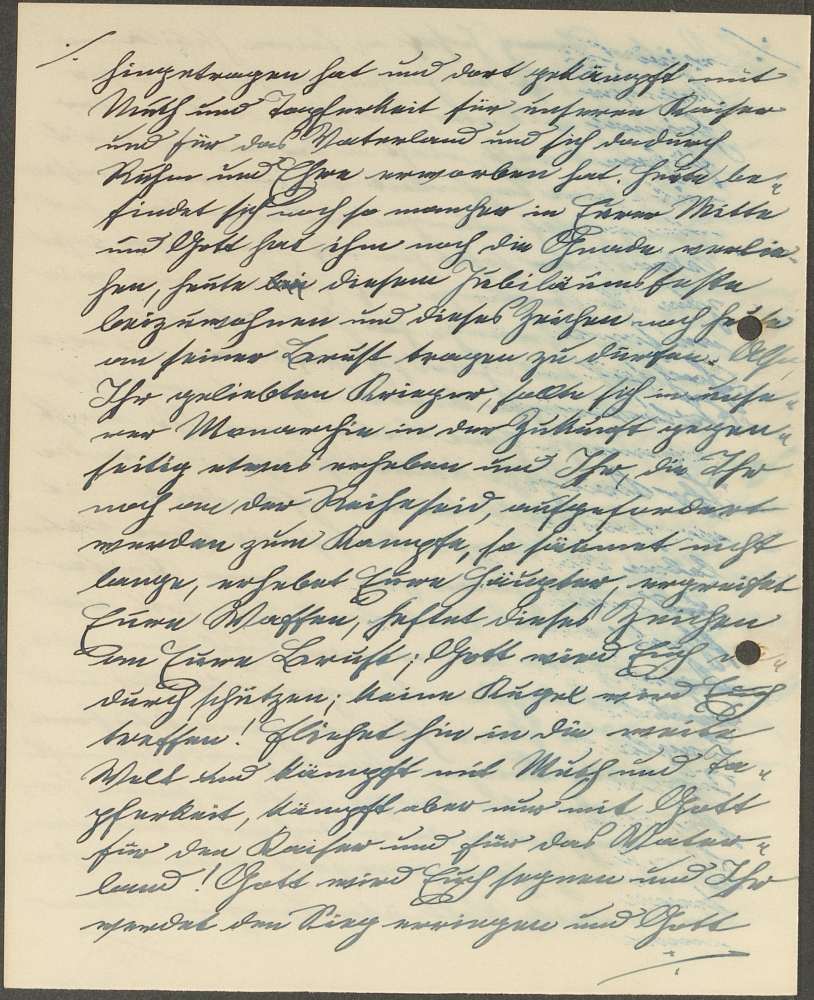 ./.
hingetragen hat und dort gekämpft mit
Muth und Tapferkeit für unseren Kaiser
und für das Vaterland und sich dadurch
Ruhm und Ehre erworben hat. Heute be-
findet sich noch so mancher in Eurer Mitte
und Gott hat ihm noch die Gnade verlie-
hen, heute bei diesem Jubiläumsfeste
beizuwohnen und dieses Zeichen noch heute
an seiner Brust tragen zu dürfen. Also,
Ihr geliebten Krieger, sollte sich in unse-
rer Monarchie in der Zukunft gegen-
seitig etwas erheben und Ihr, die Ihr
noch an der Reihe seid, aufgefordert
werden zum Kampfe, so säumet nicht
lange, erhebet Eure Häupter, ergreifet
Eure Waffen, heftet dieses Zeichen
an Eure Brust; Gott wird Euch
durch schützen; keine Kugel wird Euch
treffen! Fliehet hin in die weite
Welt und kämpft mit Muth und Ta-
pferkeit, kämpft aber nur mit Gott
für den Kaiser und für das Vater-
land! Gott wird Euch segnen und Ihr
werdet den Sieg erringen und Gott
./.